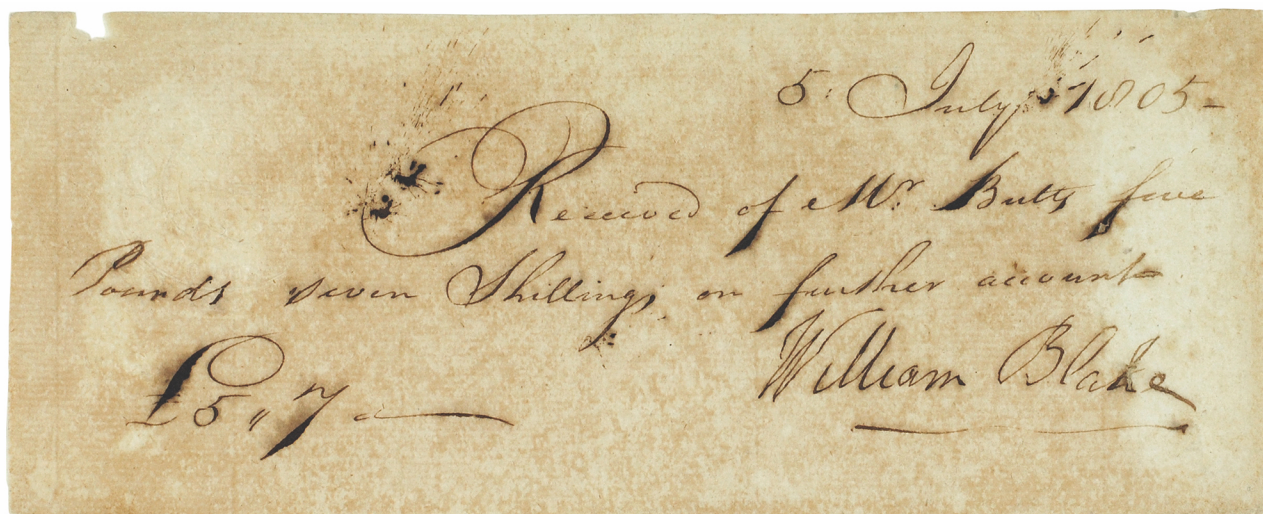 5. July 1805-
Received of Mr. Butts five
Pounds seven Shillings on further account
£5 " 7
William Blake